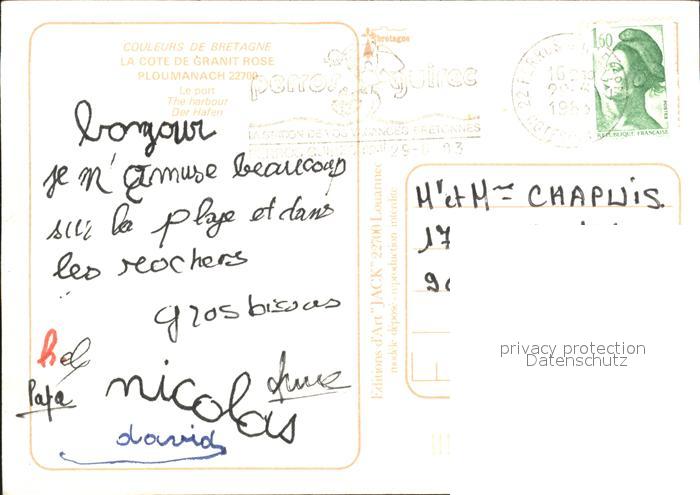 COULEURS DE BRETAGNE
LA COTE DE GRANIT ROSE
PLOUMANACH 22700
Le port
The harbour
Der Hafen
bonjour
je m'amuse beaucoup
sur la plage et dans
les rochers
gros bisous
Papa
nicolas
david
Editions d'Art "JACK" 22700 Louannec
modèle déposé - reproduction interdite
bretagne
perros guirec
LA STATION DE VOS VACANCES BRETONNES
1,60
POSTES
REPUBLIQUE FRANÇAISE
Mr et Mme CHAPUIS.
17
privacy protection
Datenschutz